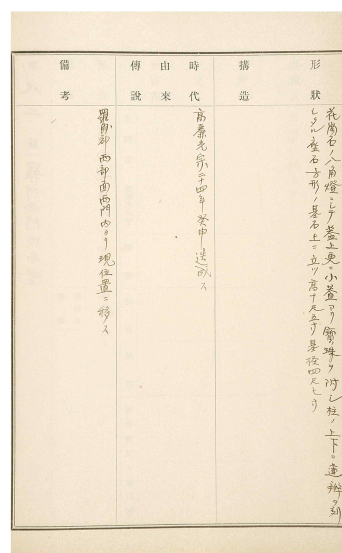 形狀
花崗石ノ八角燈ニシテ蓋上更ニ小蓋アリ寶珠ヲ附シ柱ノ上下ニ蓮瓣ヲ刻
シタル座石方形ノ基石上ニ立ツ高十尺五寸基徑四尺七寸
搆造
時代
由來
傳說
高麗光宗二十四年癸申造成ス
備考
羅州郡西部面西門內ヨリ現位置ニ移ス